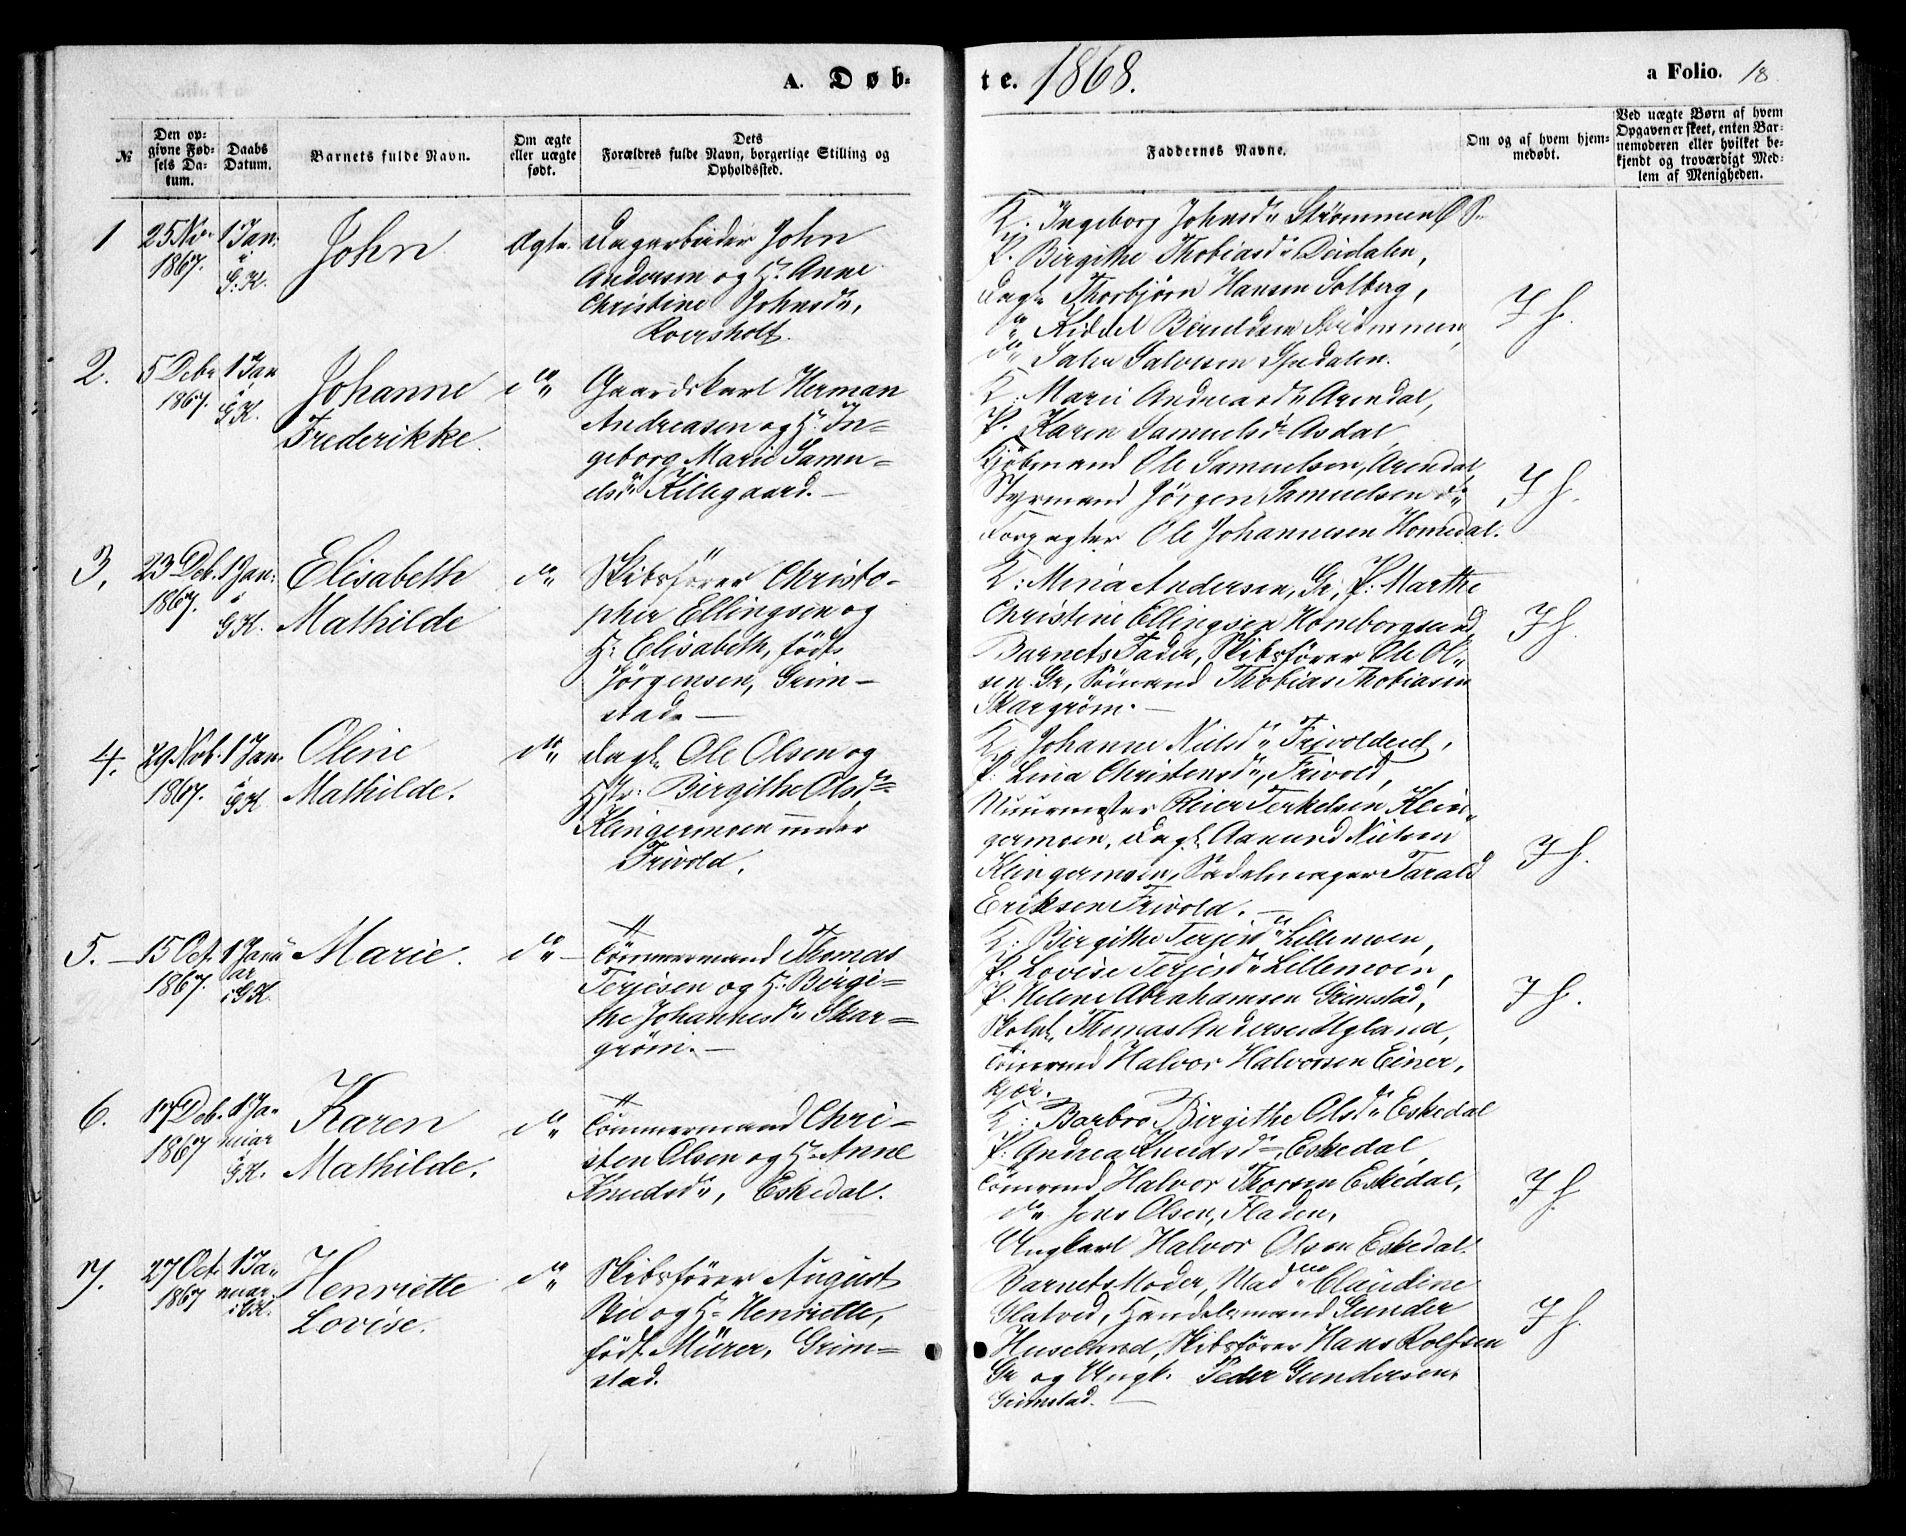 A. Døb-
te. 1868.
a Folio. 18
№
Den op-
givne Fød-
sels Da-
tum.
Daabs
Datum.
Barnets fulde Navn.
Om ægte
eller uægte
født.
Dets
Forældres fulde Navn, borgerlige Stilling og
Opholdssted.
Faddernes Navne.
Om og af hvem hjem-
medøbt.
Ved uægte Børn af hvem
Opgaven er skeet, enten Bar-
nemoderen eller hvilket be-
kjendt og troværdigt Med-
lem af Menigheden.
1
25 Nov
1867.
1 Jan:
i
G.K.
John
Ægte.
Dagarbeider John
Andersen og H. Anne
Christine Johnsd",
Roersholt.
K. Ingeborg Johnsd" Strømmen Ø S
P. Birgithe Thobiasd"
Dagl Thorbjørn Hansen Solberg,
d" Beruldsen Strømmen,
d" Salve Salvesen
J h.
2.
5 Debr
1867.
1 Jan
i
GK.
Johanne
Frederikke.
do"
Gaardskarl Herman
Andreasen og H. In=
geborg Marie Samu=
elsd" Killegaard.—
K: Marie Andreasd" Arendal,
P. Karen Samuelsd" Asdal
Kjøbmand Ole Samuelsen, Arendal
Styrmand Jørgen Samuelsen do"
Forpagter Ole Johannesen Homedal.
J h.
3.
23 Deb.
1867.
1 Jan:
i
GK.
Elisabeth
Mathilde
do"
Skibsfører Christo-
pher Ellingsen og
H: Elisabeth, født
Jørgensen, Grim-
stad.—
K: Mina Andersen, Gr, P: Marthe
Christine Ellingsen Homborgsund
Barnets Fader, Skibsfører Ole Ol-
sen Gr, Sömand Thobias Thobiasen
Skargrøm.—
J h.
4.
29 Nob.
1867.
1 Jan.
i
GK.
Oline
Mathilde.
do"
Dagl. Ole Olsen og
Hstr: Birgithe Olsd"
Klingermoen under
Frivold.
K. Johanne Nielsd" Frivoldeiet,
P. Lina Christensd", Frivold,
Muurmester Reier Terkelsen Klin-
germoen, Dagl. Aanund Nielsen
Klingermoen, Sadelmager Tarald
Eriksen Frivold.—
J h.
5.—
15 Oct.
1867.
1 Janu
ar
i GK.
Marie.
do"—
Tömmermand Thomas
Terjesen og H: Birgi=
the Johannesd" Skar=
grøm.—
K: Birgithe Terjesd" Lillemoen,
P. Lovise Terjesd" Lillemoen,
P. Helene Abrahamsen Grimstad,
Skolel. Thomas Andersen Ugland,
Tömmand Halvor Halvorsen Einer,
kjær.
J h.
6.
17 Deb.
1867
1 Ja-
nuar
i
GK.
Karen
Mathilde.
do"
Tömmermand Chri-
sten Olsen og H. Anne
Knudsd", Eskedal.
K: Barbro Birgithe Olsd" Eskedal
P. Andrea Knudsd" Eskedal,
Tömmand Halvor Thorsen Eskedal,
do" Jens Olsen, Fladen,
Ungkarl Halvor Olsen Eskedal.
J h.
7.
27 Oct.
1867
1 Ja-
nuar
i GK.
Henriette
Lovise.
do"
Skibsfører August
Bie og H. Henriette,
født Mürer, Grim=
stad.
Barnets Moder, Mad" Claudine
Glatved, Handelsmand Gunder
Huselund, Skibsfører Hans Rolfsen
Gr og Ungk. Peder Gundersen,
Grimstad.—
J h.